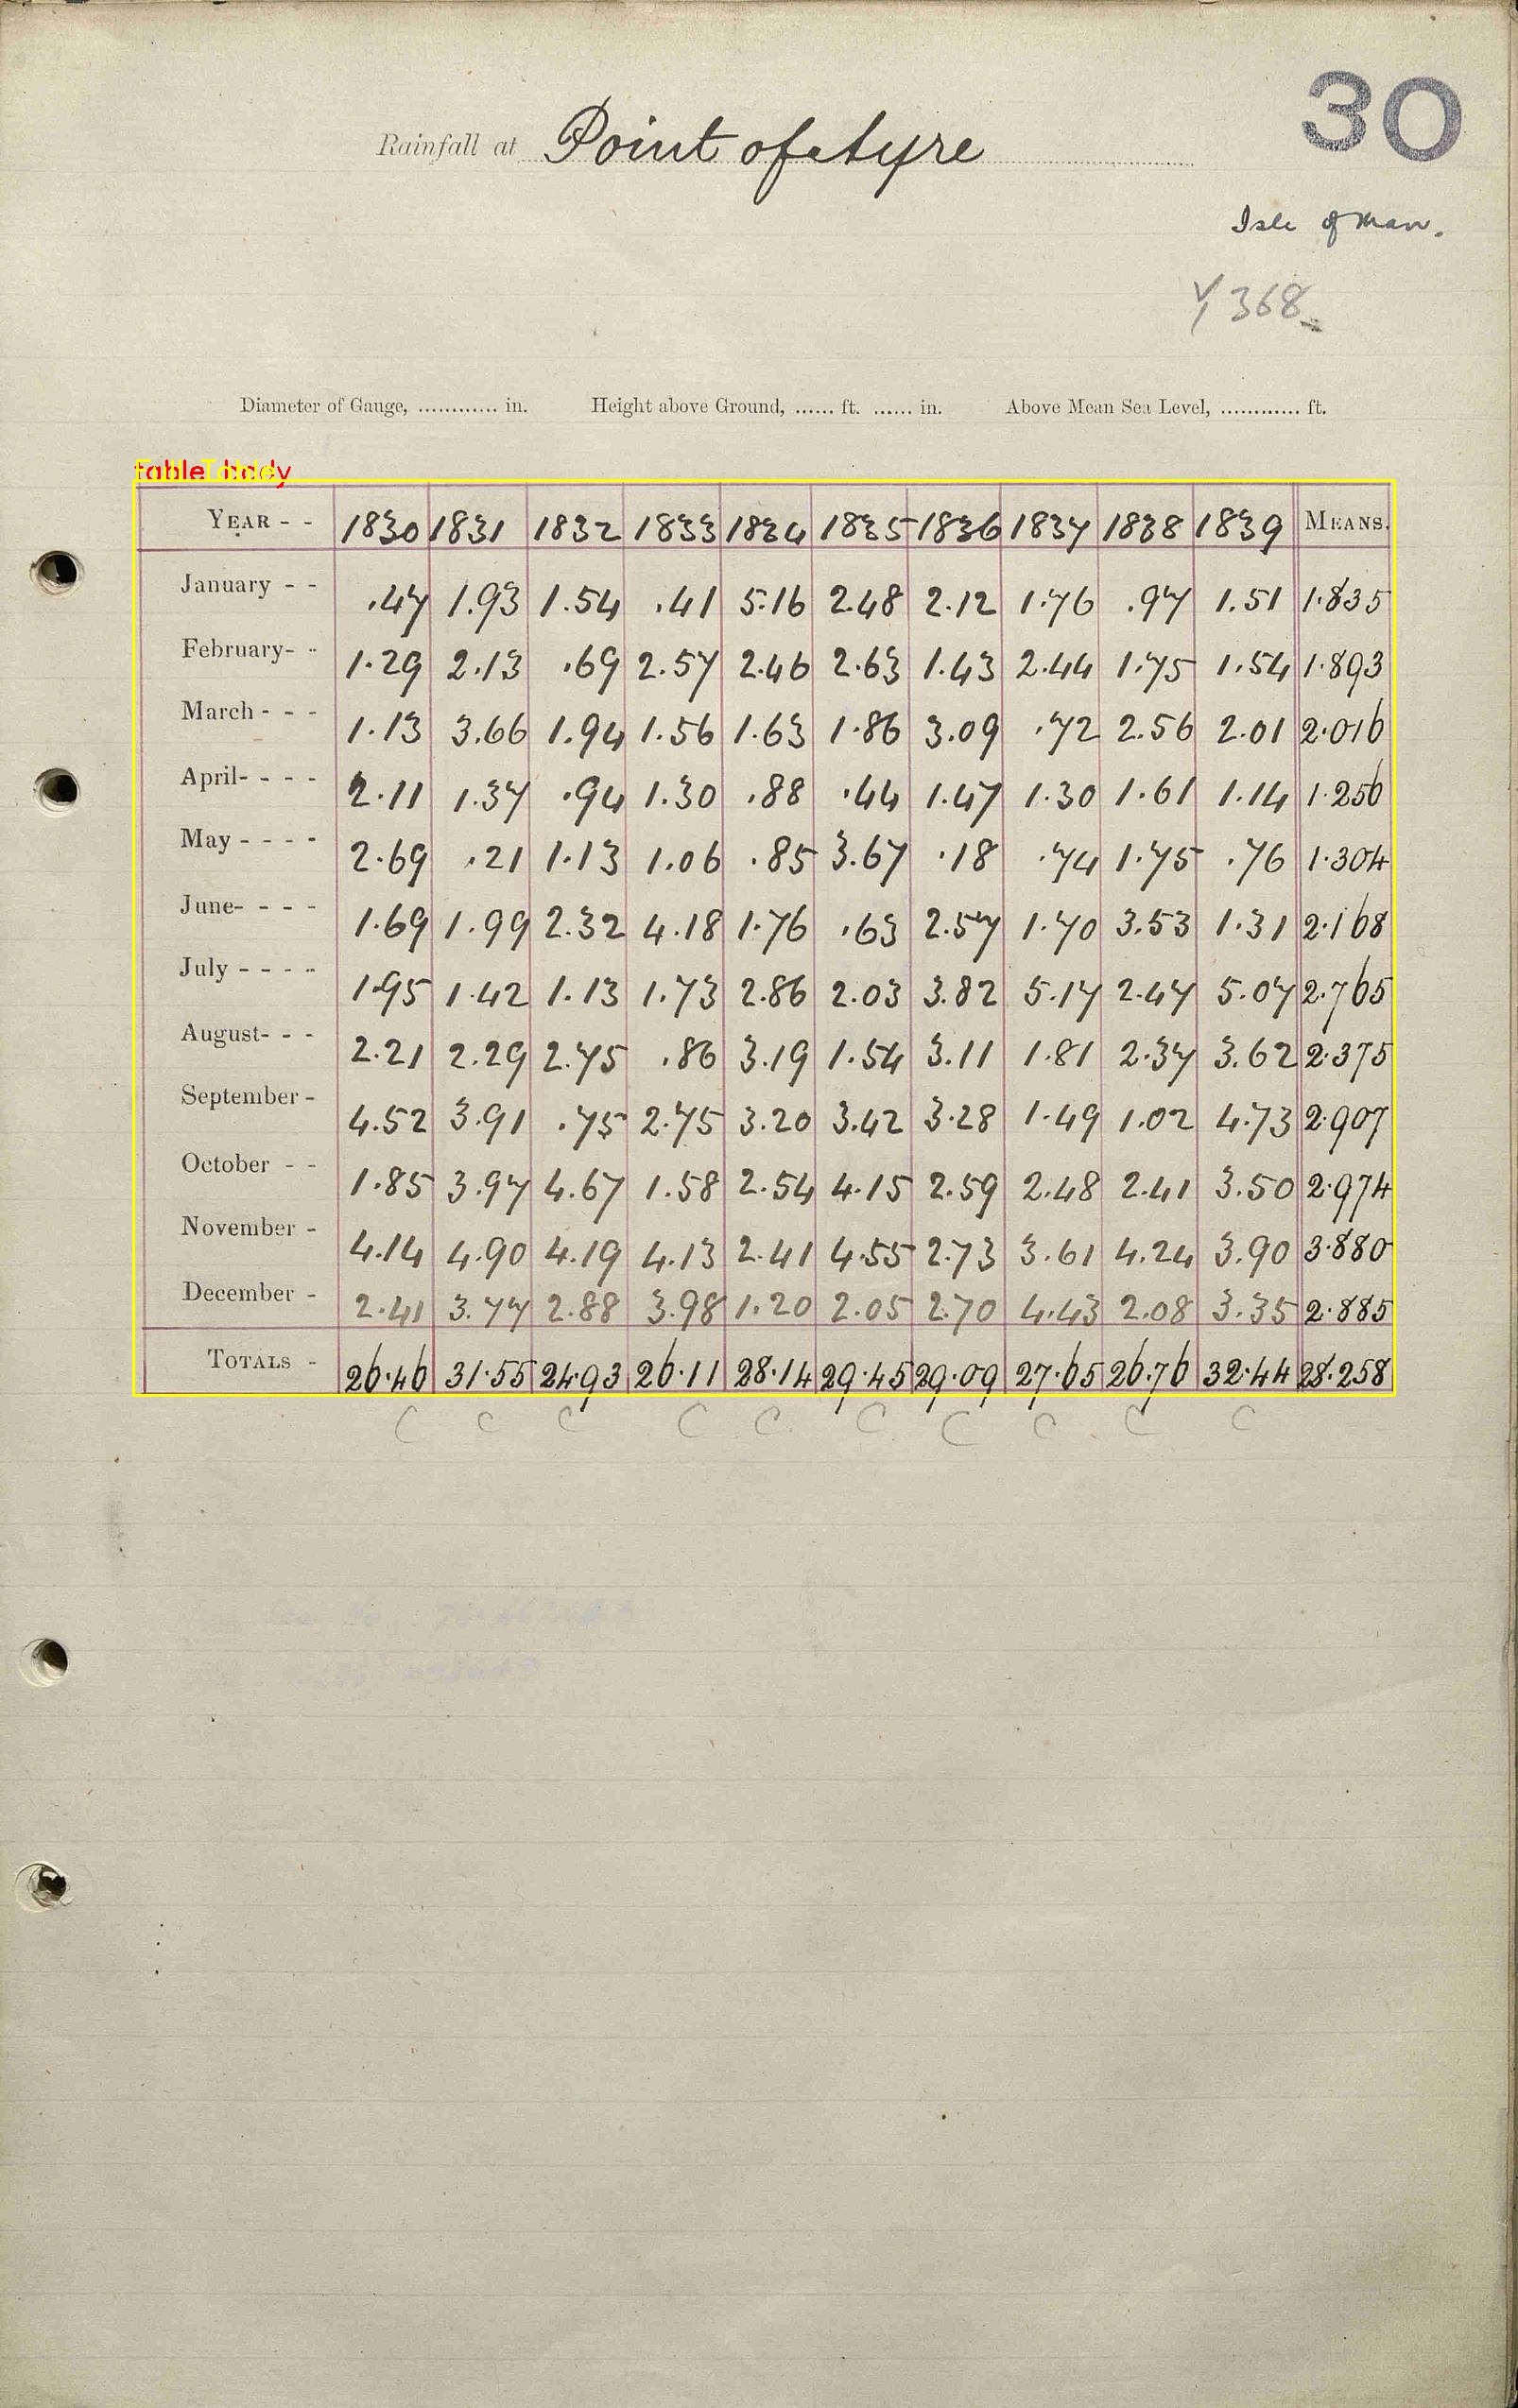 30
Rainfall at Point of Ayre
Isle of Man.
368
Diameter of Gauge, ............ in. Height above Ground, ...... ft. ...... in. Above Mean Sea Level, ............ ft.
table body
YEAR - - 1830 1831 1832 1833 1834 1835 1836 1837 1838 1839 MEANS.
January - - .47 1.93 1.54 .41 5.16 2.48 2.12 1.76 .97 1.51 1.835
February- - 1.29 2.13 .69 2.57 2.46 2.63 1.43 2.44 1.75 1.54 1.893
March - - - 1.13 3.66 1.94 1.56 1.63 1.86 3.09 .72 2.56 2.01 2.016
April- - - - 2.11 1.37 .94 1.30 .88 .44 1.47 1.30 1.61 1.14 1.256
May - - - - 2.69 .21 1.13 1.06 .85 3.67 .18 .74 1.75 .76 1.304
June- - - - 1.69 1.99 2.32 4.18 1.76 .63 2.57 1.70 3.53 1.31 2.168
July - - - - 1.95 1.42 1.13 1.73 2.86 2.03 3.82 5.17 2.47 5.07 2.765
August- - - 2.21 2.29 2.75 .86 3.19 1.54 3.11 1.81 2.37 3.62 2.375
September - 4.52 3.91 .75 2.75 3.20 3.42 3.28 1.49 1.02 4.73 2.907
October - - 1.85 3.97 4.67 1.58 2.54 4.15 2.59 2.48 2.41 3.50 2.974
November - 4.14 4.90 4.19 4.13 2.41 4.55 2.73 3.61 4.24 3.90 3.880
December - 2.41 3.77 2.88 3.98 1.20 2.05 2.70 4.43 2.08 3.35 2.885
TOTALS - 26.46 31.55 24.93 26.11 28.14 29.45 29.09 27.65 26.76 32.44 28.258
C C C C C C C C C C